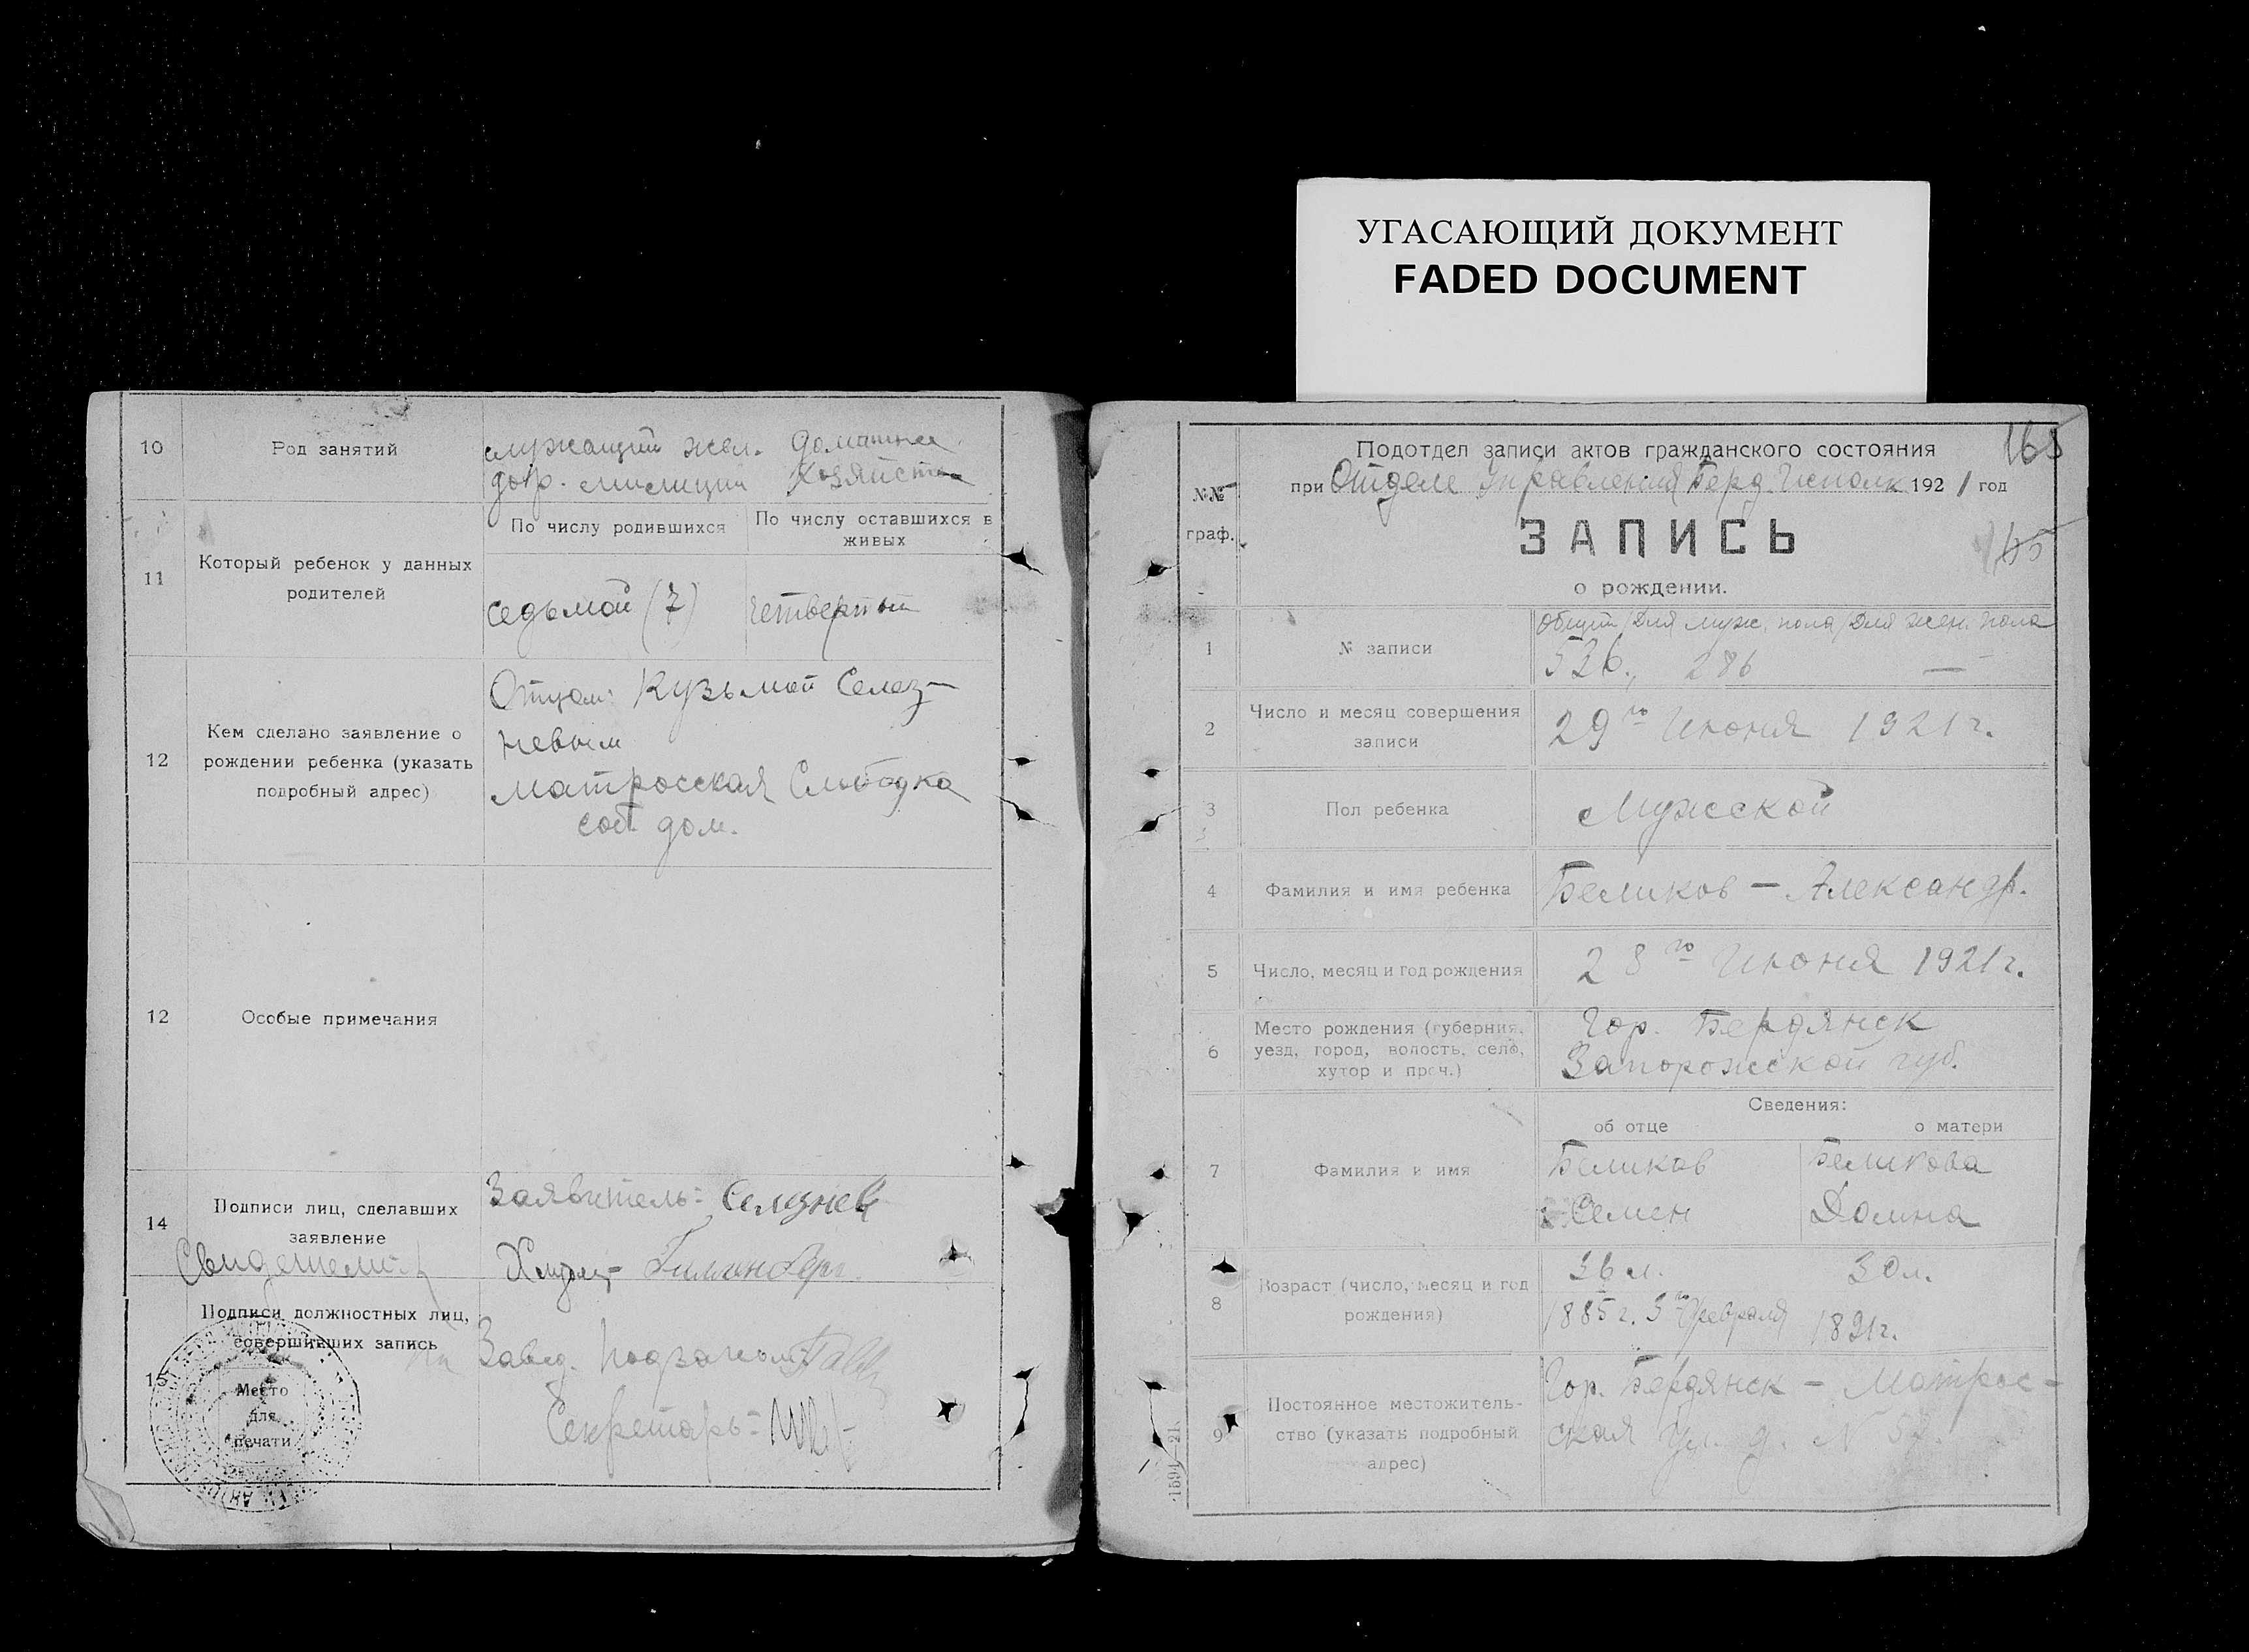 УГАСАЮЩИЙ ДОКУМЕНТ
FADED DOCUMENT
10
Род занятий
служащий жел. домашнее
дор. милиции хозяйство
11
Который ребенок у данных
родителей
По числу родившихся
По числу оставшихся в
живых
седьмой (7)
четвертый
12
Кем сделано заявление о
рождении ребенка (указать
подробный адрес)
Отцом: Кузьмой Селез-
невым
Матросская Слободка
соб. дом.
12
Особые примечания
14
Подписи лиц, сделавших
заявление
Заявитель: Селезнев
Свидетели:
15
Подписи должностных лиц,
совершивших запись
Завед.
Секретарь:
Место
для
печати
165
Подотдел записи актов гражданского состояния
№№
граф.
при Отделе Управления Берд. Исполк 1921 год
ЗАПИСЬ
165
о рождении.
1
№ записи
Общий / Для муж. пола / Для жен. пола
526., 286 —
2
Число и месяц совершения
записи
29го Июня 1921 г.
3
Пол ребенка
Мужской
4
Фамилия и имя ребенка
Беликов — Александр.
5
Число, месяц и год рождения
28го Июня 1921 г.
6
Место рождения (губерния,
уезд, город, волость, село,
хутор и проч.)
Гор. Бердянск
Запорожской губ.
Сведения:
об отце
о матери
7
Фамилия и имя
Беликов
Семен
Беликова
Домна
8
Возраст (число, месяц и год
рождения)
36 л. 30 л.
1885 г. 3го Февраля 1891 г.
9
Постоянное местожитель-
ство (указать подробный
адрес)
Гор. Бердянск — Матрос-
ская ул. д. № 57.
1594—21.